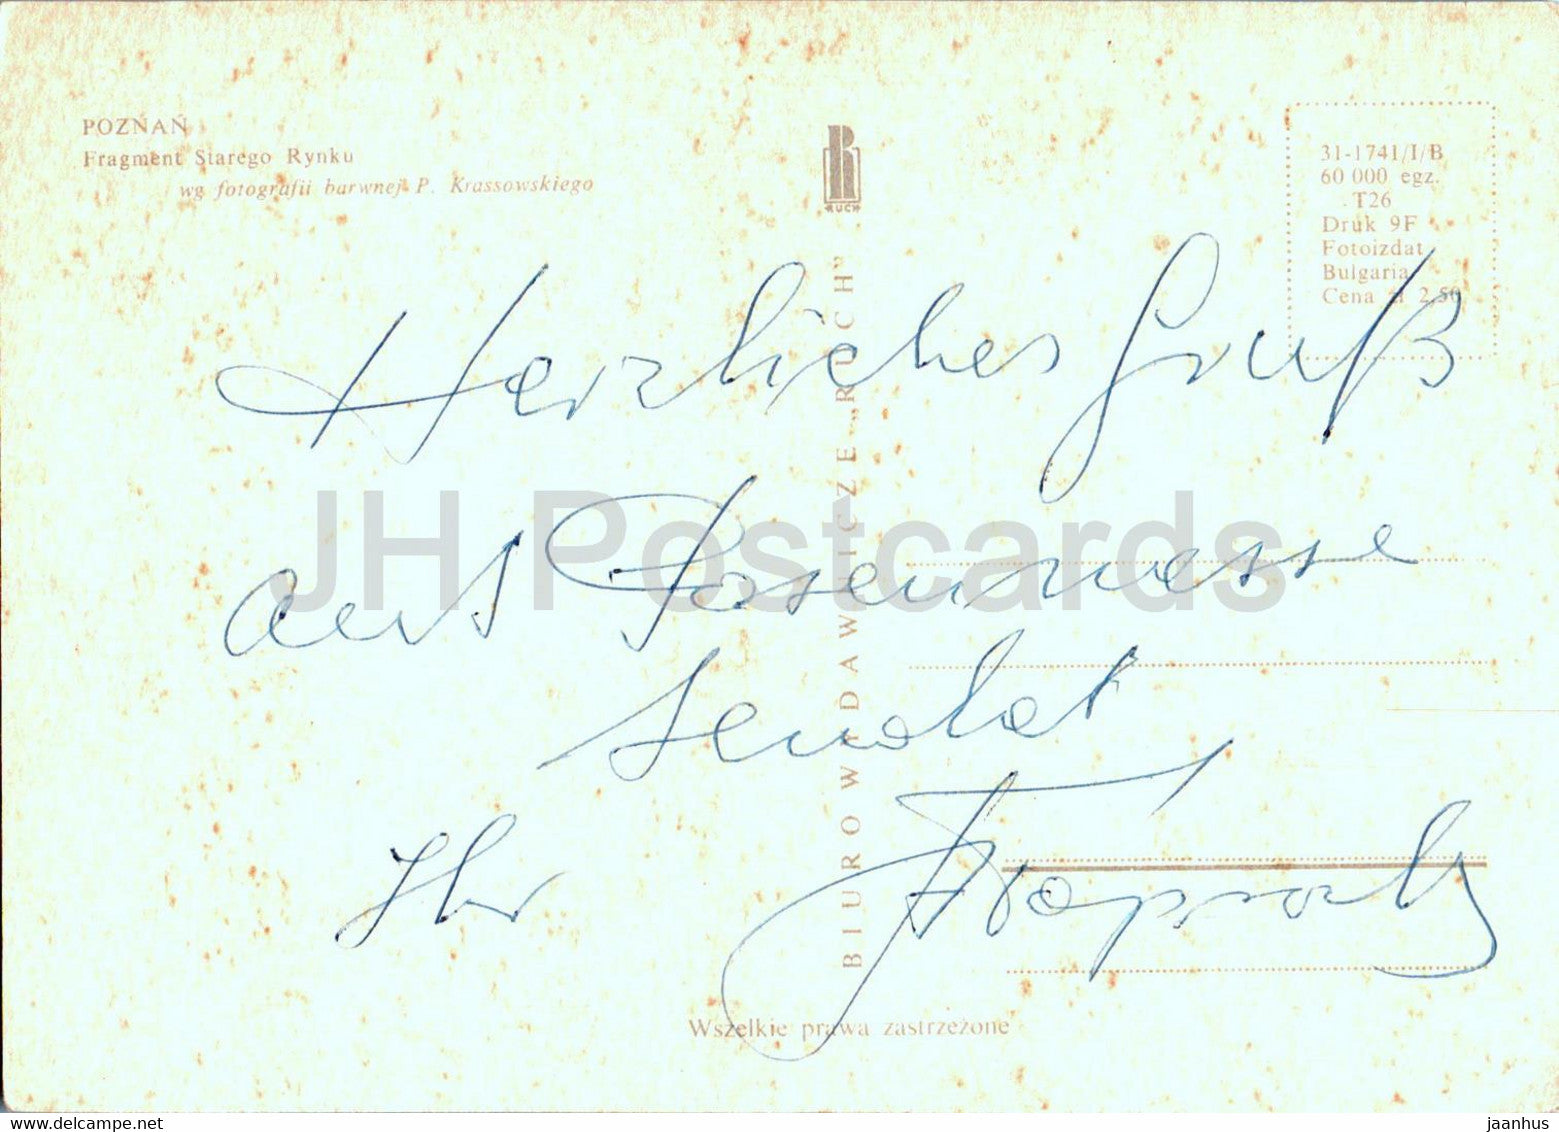 POZNAŃ
Fragment Starego Rynku
wg fotografii barwnej P. Krassowskiego
RUCH
BIURO WYDAWNICZE „RUCH”
31-1741/I/B
60 000 egz.
T26
Druk 9F
Fotoizdat
Bulgaria
Cena zł 2,50
Herzlichen Gruß
aus Posenmesse
sendet
Ihr
Wszelkie prawa zastrzeżone
JH Postcards
www.delcampe.net
jaanhus